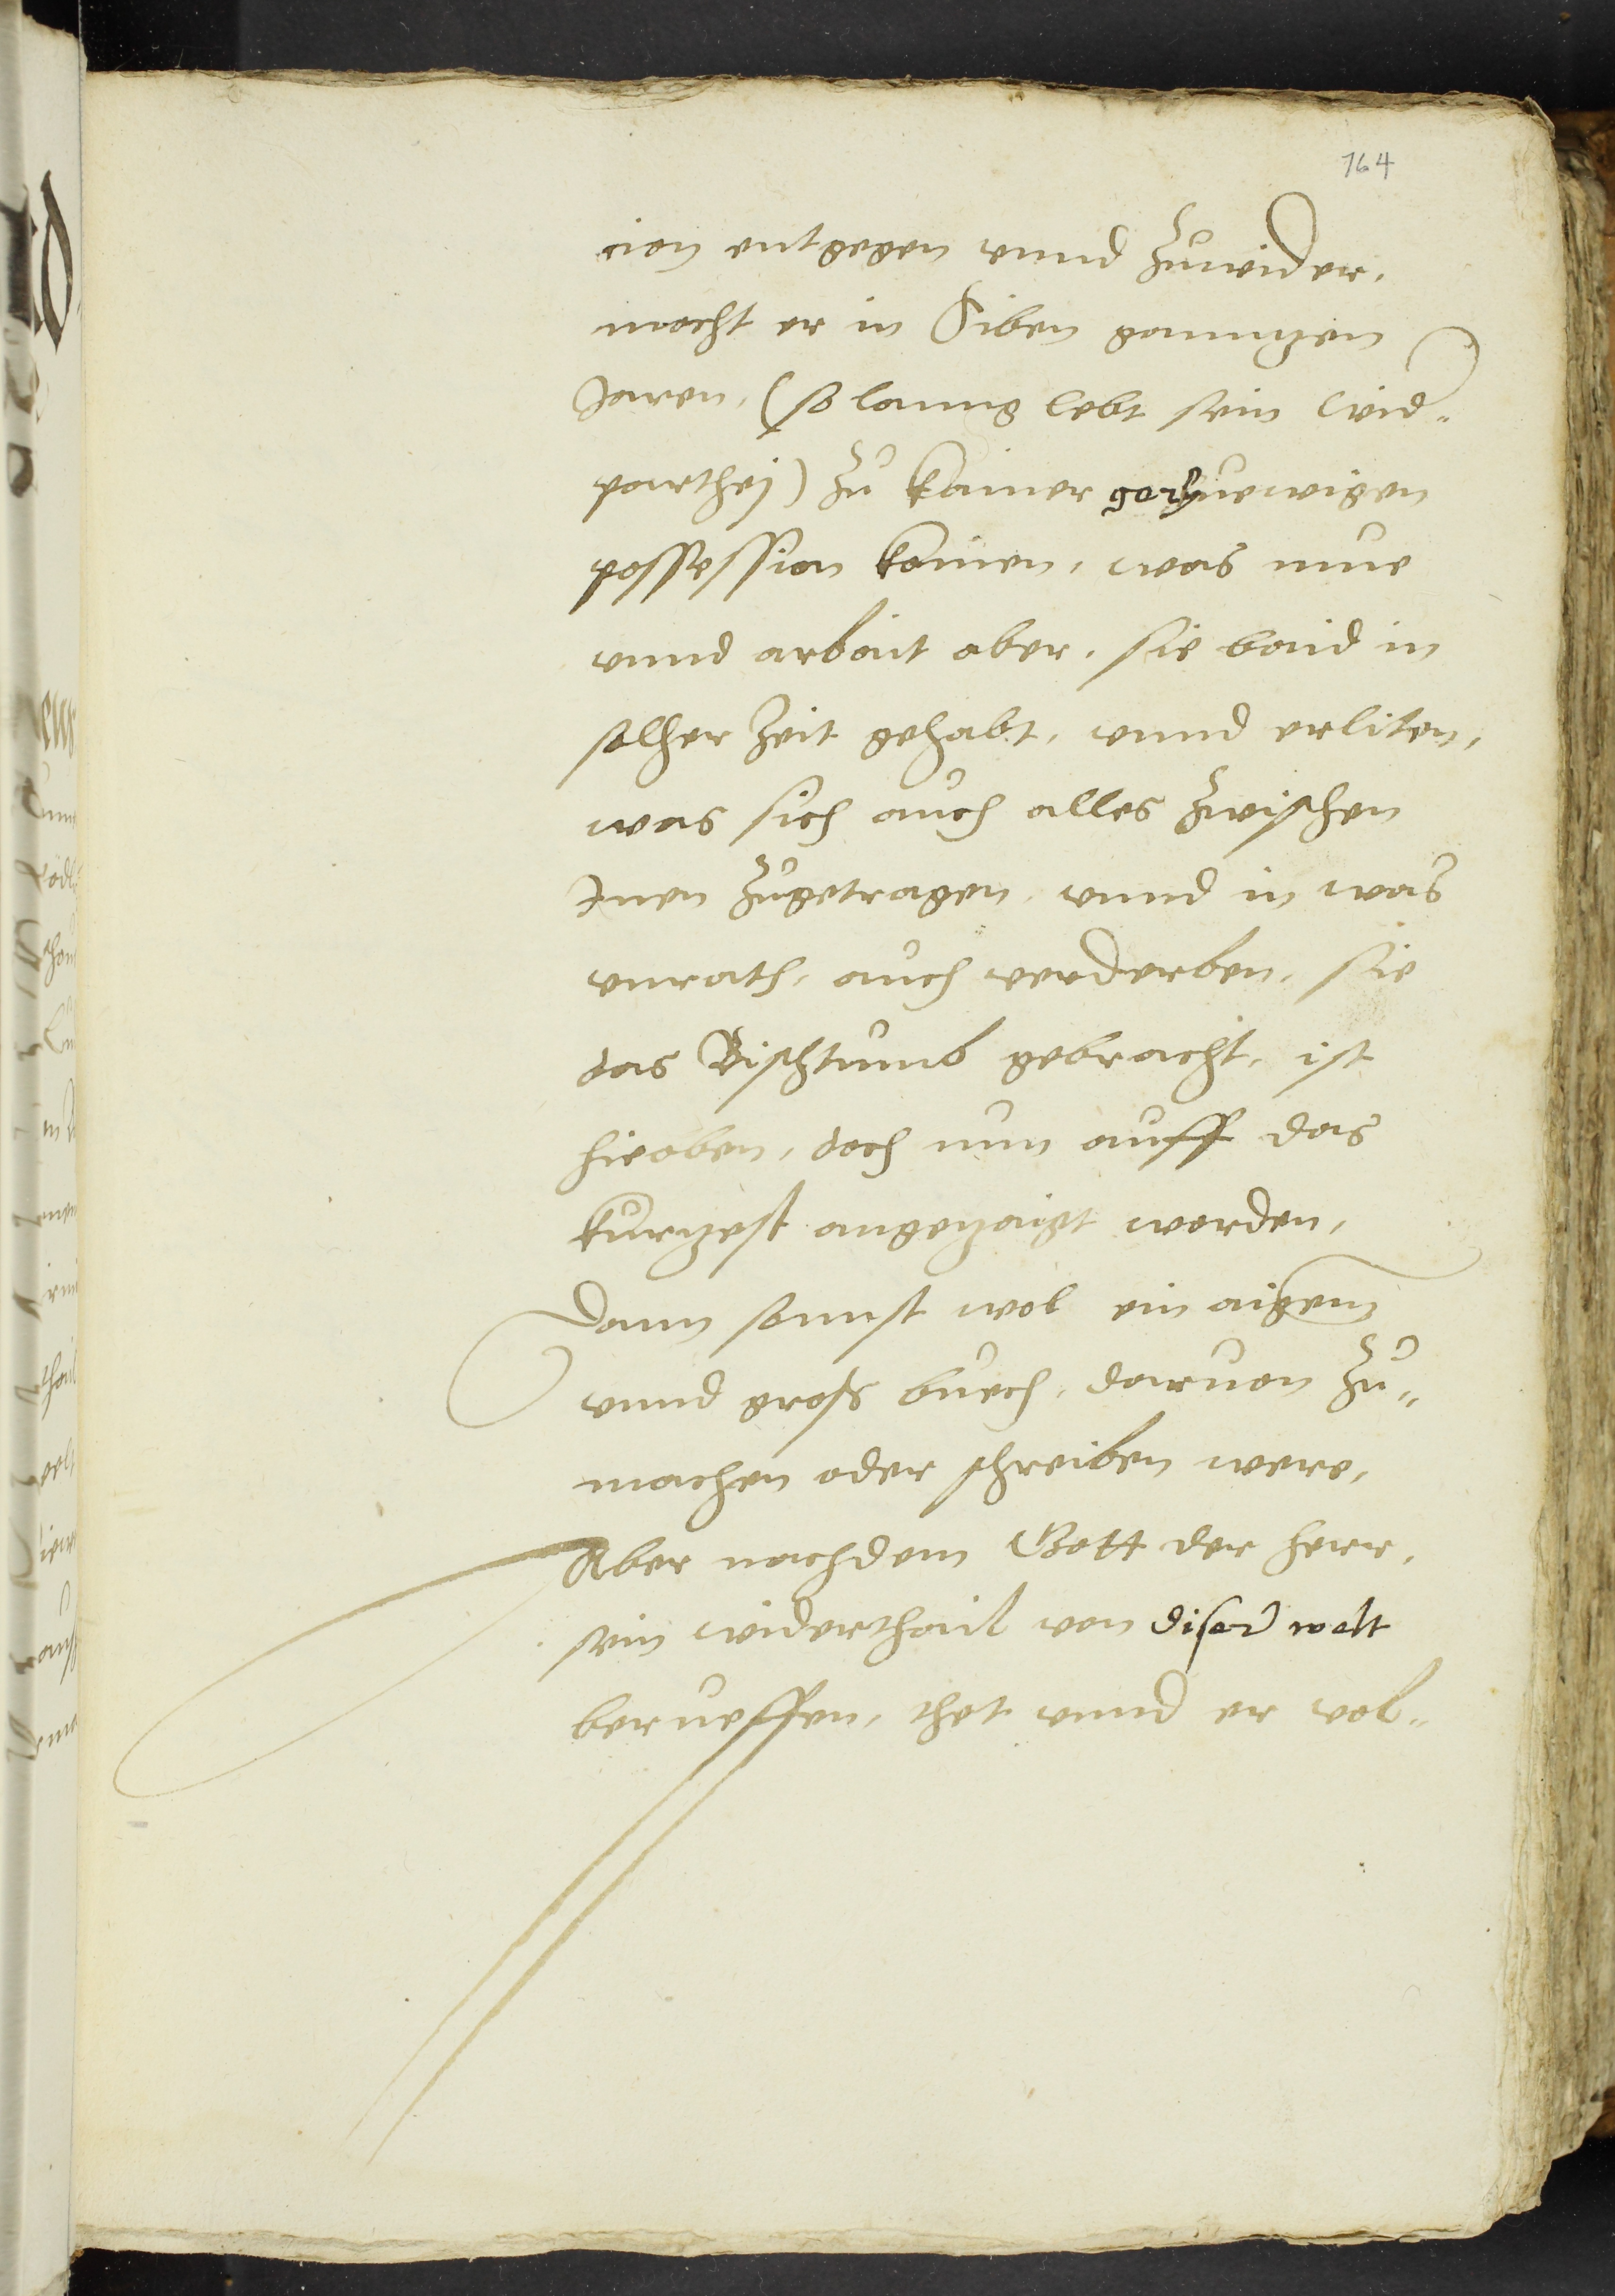 164
cion entgegen vnnd zuwider,
mocht er in Siben gantzen
Jaren, (so lanng lebt sein wid¨
parthej) zu kainer gerhuewigen
possession komen, was mue
vnnd arbait aber, sie baid in
solher Zeit gehabt, vnnd erliten,
was sich auch alles zwischen
Inen zugetragen, vnnd in was
vnrath, auch verderben, sie
das Bischtumb gebracht, ist
hieoben, doch nun auff das
kurtzest angezaigt worden,
Dann sonnst wol ein aigen
vnnd gross buech, daruon zu¨
machen oder schreiben were,
Aber nachdem Gott der herr,
sein widerthail von diser welt
berueffen, thet vnnd er vol¨